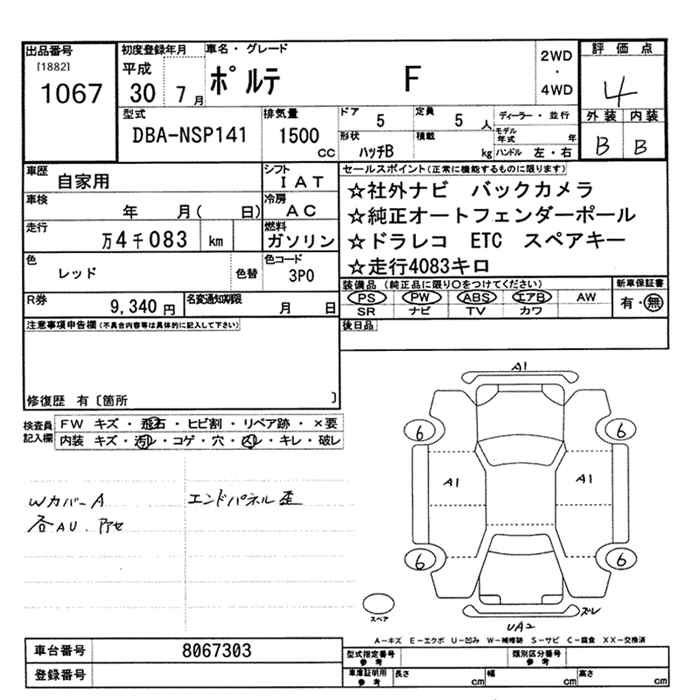 出品番号 初度登録年月 車名・グレード 2WD ・ 4WD 評価点
[1882] 1067 平成 30 7月 ポルテ F 4
外装 内装
B B
型式 DBA-NSP141 排気量 1500 cc ドア 5 定員 5 人 ディーラー・並行
形状 ハッチB 積載 kg モデル年式 年 ハンドル 左・右
車歴 自家用 シフト IAT セールスポイント(正常に機能するものに限ります)
車検 年 月( 日) 冷房 AC ☆社外ナビ バックカメラ
☆純正オートフェンダーポール
走行 万4千083 km 燃料 ガソリン ☆ドラレコ ETC スペアキー
☆走行4083キロ
色 レッド 色替 色コード 3P0 装備品(純正品に限り○をつけてください) 新車保証書
PS PW ABS エアB AW 有・無
SR ナビ TV カワ
R券 9,340 円 名変通知期限 月 日
注意事項申告欄(不具合内容等は具体的に記入して下さい) 後日品
修復歴 有〔箇所 〕
検査員記入欄 FW キズ・飛石・ヒビ割・リペア跡・×要
内装 キズ・汚れ・コゲ・穴・スレ・キレ・破レ
Wカバー A エンドパネル歪
各AU.
A1
6 6
A1 A1
6 6
スペア
UA2 ズレ
A-キズ E-エクボ U-凹み W-補修跡 S-サビ C-腐食 XX-交換済
車台番号 8067303 型式指定番号 参考 類別区分番号 参考
登録番号 車庫証明用 参考 長さ cm 幅 cm 高さ cm